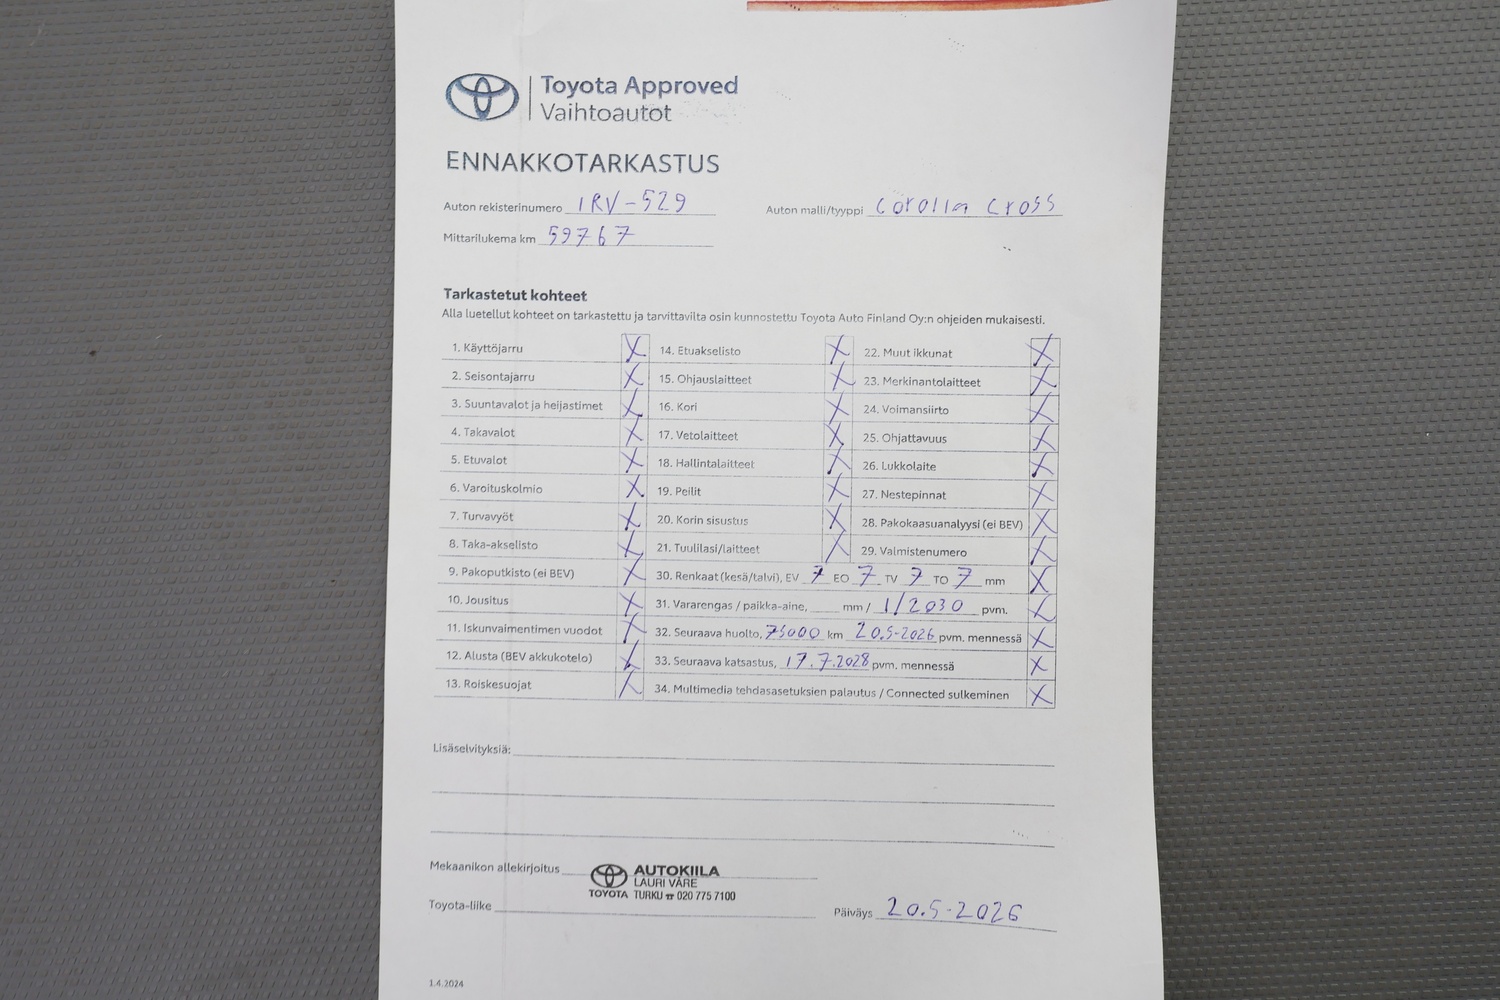 Toyota Approved
Vaihtoautot
ENNAKKOTARKASTUS
Auton rekisterinumero IRV-529 Auton malli/tyyppi Corolla Cross
Mittarilukema km 59767
Tarkastetut kohteet
Alla luetellut kohteet on tarkastettu ja tarvittavilta osin kunnostettu Toyota Auto Finland Oy:n ohjeiden mukaisesti.
1. Käyttöjarru X 14. Etuakselisto X 22. Muut ikkunat X
2. Seisontajarru X 15. Ohjauslaitteet X 23. Merkinantolaitteet X
3. Suuntavalot ja heijastimet X 16. Kori X 24. Voimansiirto X
4. Takavalot X 17. Vetolaitteet X 25. Ohjattavuus X
5. Etuvalot X 18. Hallintalaitteet X 26. Lukkolaite X
6. Varoituskolmio X 19. Peilit X 27. Nestepinnat X
7. Turvavyöt X 20. Korin sisustus X 28. Pakokaasuanalyysi (ei BEV) X
8. Taka-akselisto X 21. Tuulilasi/laitteet X 29. Valmistenumero X
9. Pakoputkisto (ei BEV) X 30. Renkaat (kesä/talvi), EV 7 EO 7 TV 7 TO 7 mm X
10. Jousitus X 31. Vararengas / paikka-aine, mm / 1/2030 pvm. X
11. Iskunvaimentimen vuodot X 32. Seuraava huolto, 75000 km 20.5-2026 pvm. mennessä X
12. Alusta (BEV akkukotelo) X 33. Seuraava katsastus, 17.7.2028 pvm. mennessä X
13. Roiskesuojat X 34. Multimedia tehdasasetuksien palautus / Connected sulkeminen X
Lisäselvityksiä:
Mekaanikon allekirjoitus
AUTOKIILA
LAURI VÄRE
TOYOTA TURKU ☎ 020 775 7100
Toyota-liike Päiväys 20.5-2026
1.4.2024